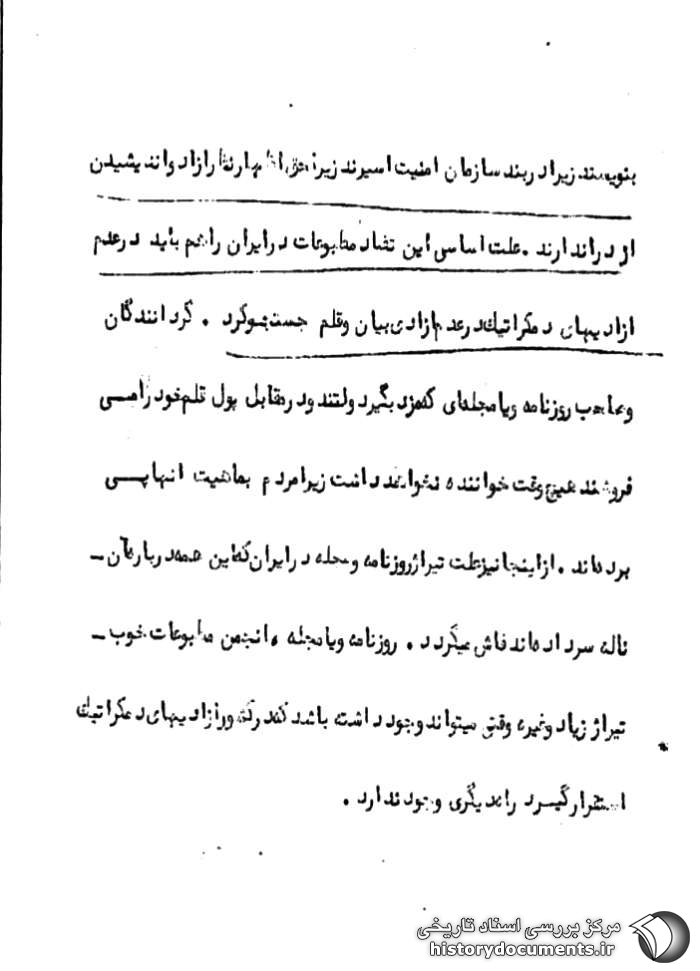 بنویسند زیرا در بند سازمان امنیت اسیرند زیرا حق اظهار نظر آزاد و اندیشیدن
از دراندارند . علت اساسی این تضاد مطبوعات در ایران را هم باید در عدم
ازادیهای دمکراتیک در عدم ازادی بیان و قلم جستجو کرد . گردانندگان
و صاحب روزنامه و یا مجله‌ای که مزد بگیر دولتند و در مقابل پول قلم خود را می
فروشند هیچ وقت خواننده نخواهند داشت زیرا مردم بماهیت انها پی
برده‌اند . از اینجا نیز علت تیراژ روزنامه و مجله در ایران که این همه درباره آن ـ
ناله سر داده‌اند فاش میگردد . روزنامه و یا مجله ، انجمن مطبوعات خوب ـ
تیراژ زیاد و غیره وقتی میتواند وجود داشته باشد که در کشور ازادیهای دمکراتیک
استقرار گیرد راه دیگری وجود ندارد .
مرکز بررسی اسناد تاریخی
historydocuments.ir